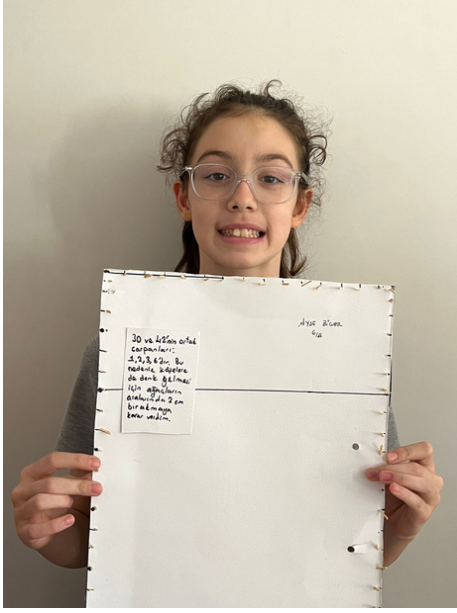 30 ve 42'nin ortak
çarpanları:
1,2,3,6'dır. Bu
nedenle köşelere
de denk gelmesi
için ağaçların
aralarında 2 cm
bırakmaya
karar verdim.
6/A